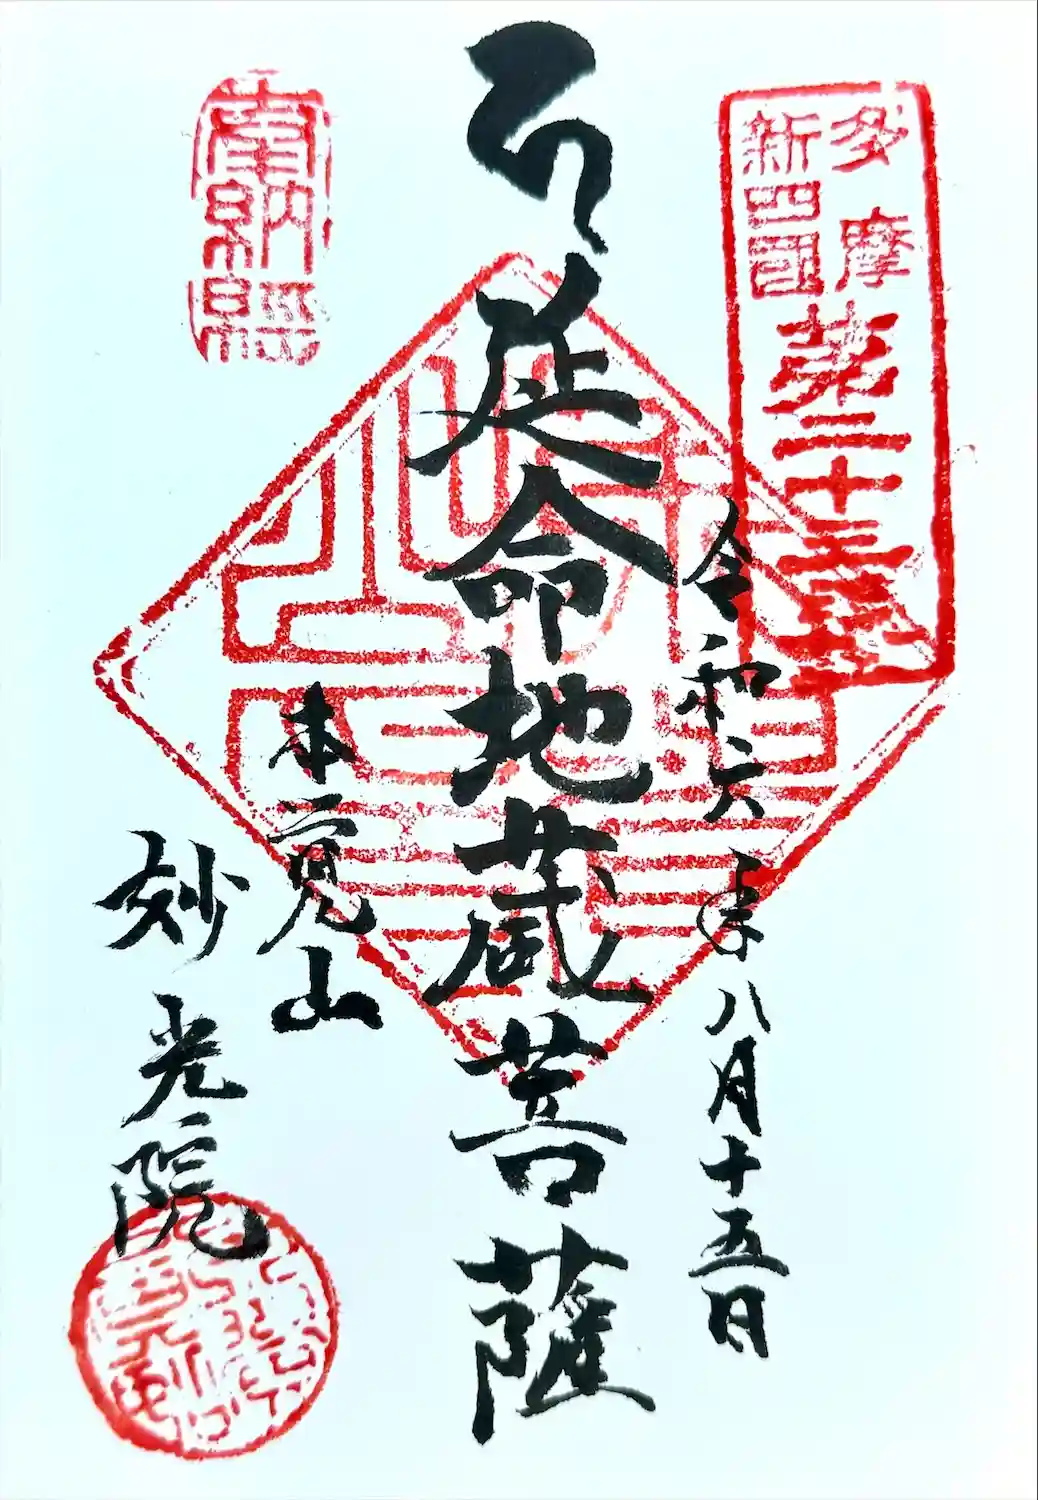 多摩
新四國
第二十三番
令和六年八月十五日
延命地蔵菩薩
本覚山
妙光院
奉納経